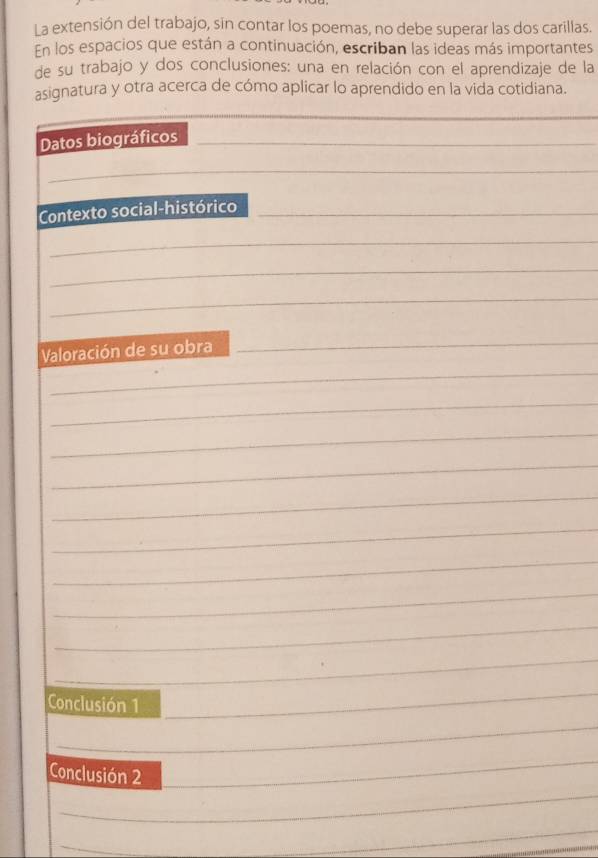 La extensión del trabajo, sin contar los poemas, no debe superar las dos carillas.
En los espacios que están a continuación, escriban las ideas más importantes
de su trabajo y dos conclusiones: una en relación con el aprendizaje de la
asignatura y otra acerca de cómo aplicar lo aprendido en la vida cotidiana.
Datos biográficos
Contexto social-histórico
Valoración de su obra
Conclusión 1
Conclusión 2